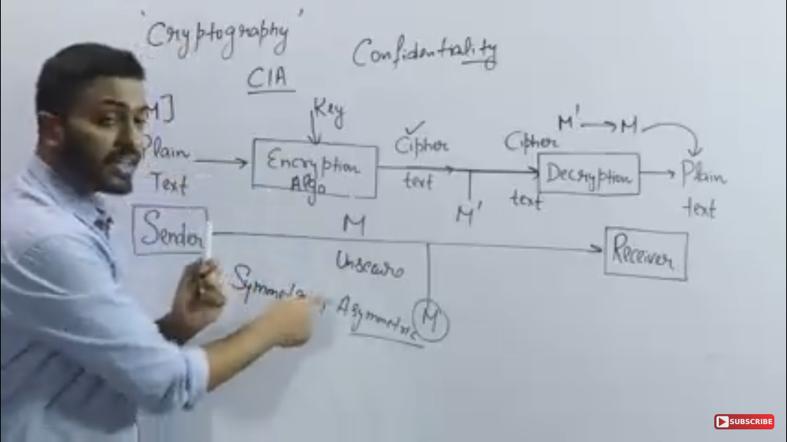 'Cryptography'
Confidentiality
CIA
M]
Key
Plain
Text
Encryption
Algo
Cipher
text
M'
Cipher
text
M' → M
Decryption
Plain
text
Sender
M
Unsecure
Receiver
Symmetric, Asymmetric
M
SUBSCRIBE